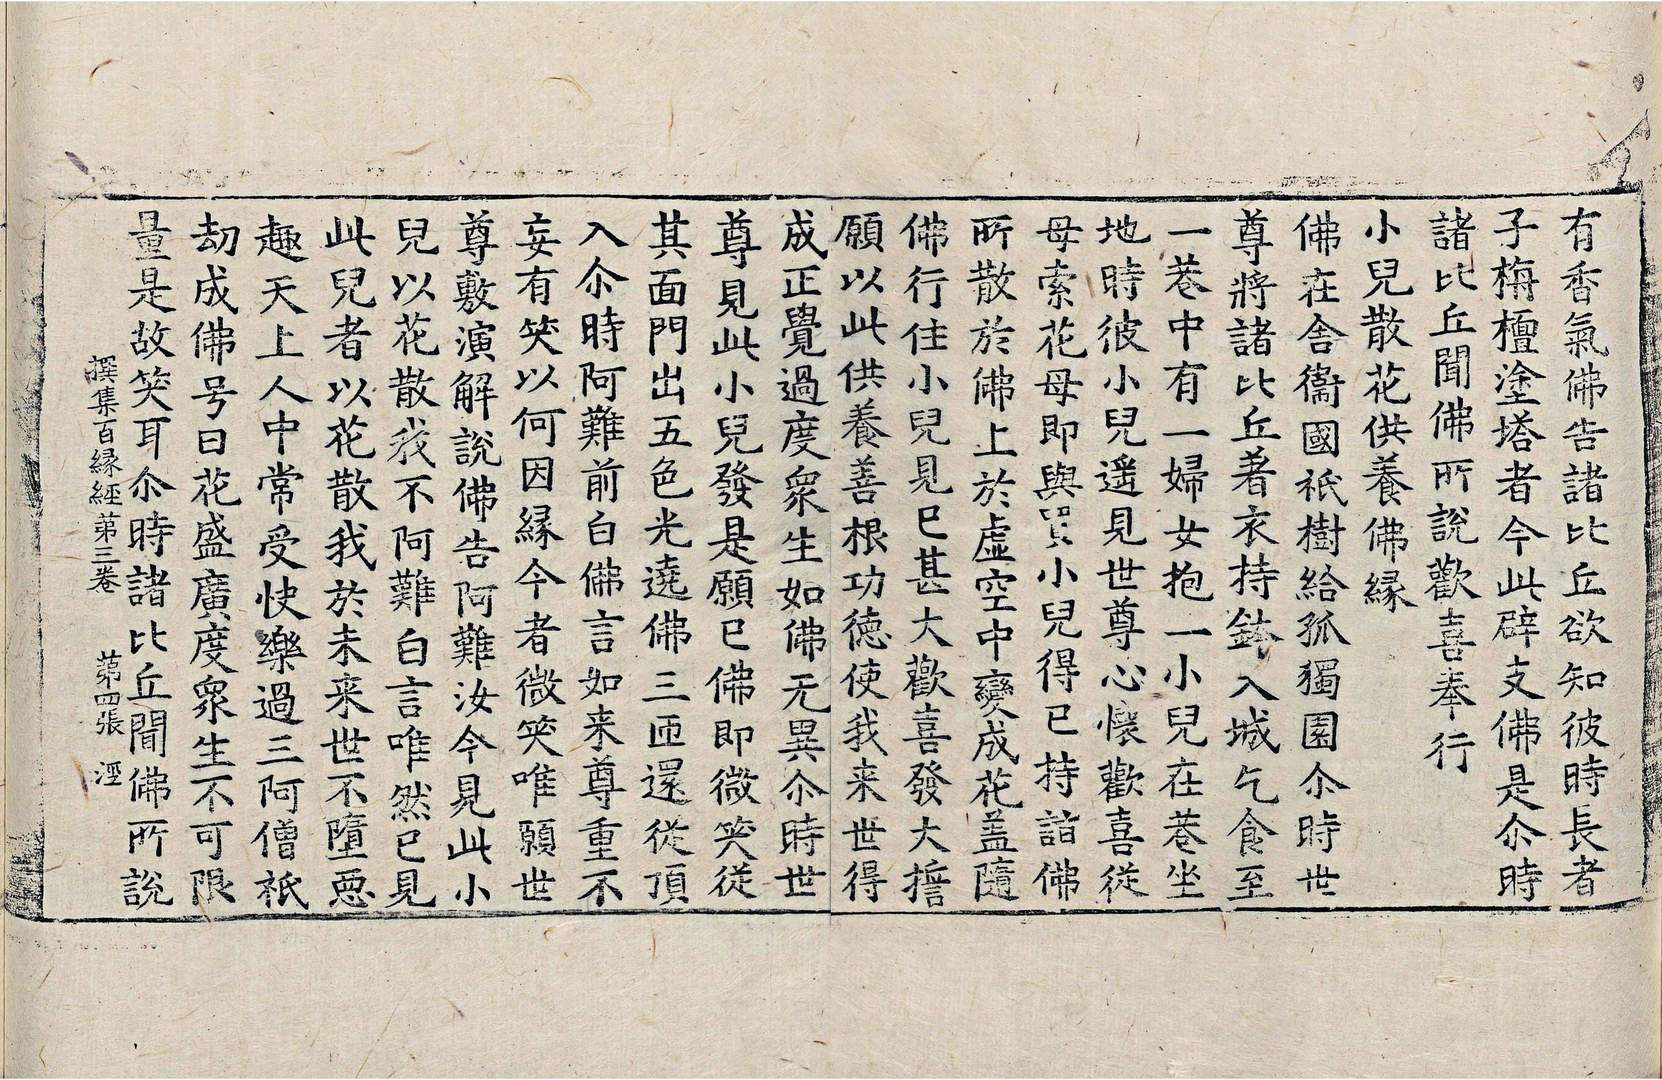 有香氣佛告諸比丘欲知彼時長者
子栴檀塗塔者今此辟支佛是尒時
諸比丘聞佛所說歡喜奉行
小兒散花供養佛縁
佛在舍衞國祇樹給孤獨園尒時世
尊將諸比丘著衣持鉢入城乞食至
一巷中有一婦女抱一小兒在巷坐
地時彼小兒遥見世尊心懷歡喜從
母索花母即與買小兒得已持詣佛
所散於佛上於虛空中變成花蓋隨
佛行住小兒見已甚大歡喜發大誓
願以此供養善根功德使我来世得
成正覺過度衆生如佛无異尒時世
尊見此小兒發是願已佛即微笑從
其面門出五色光遶佛三匝還從頂
入尒時阿難前白佛言如来尊重不
妄有笑以何因縁今者微笑唯願世
尊敷演解說佛告阿難汝今見此小
兒以花散我不阿難白言唯然已見
此兒者以花散我於未来世不墮惡
趣天上人中常受快樂過三阿僧祇
劫成佛号曰花盛廣度衆生不可限
量是故笑耳尒時諸比丘聞佛所說
撰集百縁經第三卷 第四張 涇